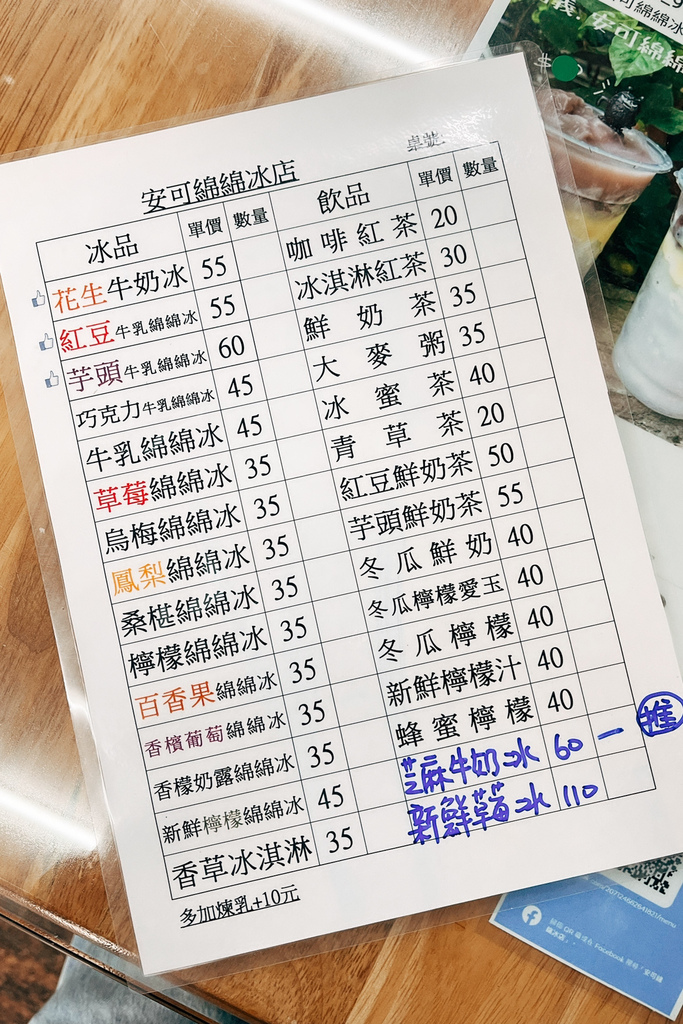 安可綿綿冰店
桌號:
冰品 單價 數量 飲品 單價 數量
花生牛奶冰 55 咖啡紅茶 20
紅豆牛乳綿綿冰 55 冰淇淋紅茶 30
芋頭牛乳綿綿冰 60 鮮奶茶 35
巧克力牛乳綿綿冰 45 大麥粥 35
牛乳綿綿冰 45 冰蜜茶 40
草莓綿綿冰 35 青草茶 20
烏梅綿綿冰 35 紅豆鮮奶茶 50
鳳梨綿綿冰 35 芋頭鮮奶茶 55
桑椹綿綿冰 35 冬瓜鮮奶 40
檸檬綿綿冰 35 冬瓜檸檬愛玉 40
百香果綿綿冰 35 冬瓜檸檬 40
香檳葡萄綿綿冰 35 新鮮檸檬汁 40
香檬奶露綿綿冰 35 蜂蜜檸檬 40
新鮮檸檬綿綿冰 45 芝麻牛奶冰 60 一 推
香草冰淇淋 35 新鮮草莓冰 110
多加煉乳+10元